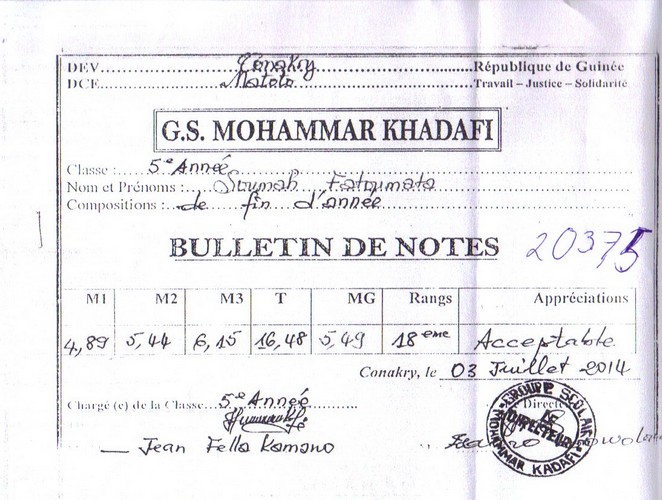 DEV Conakry République de Guinée
DCE Matoto Travail – Justice – Solidarité
G.S. MOHAMMAR KHADAFI
Classe : 5e Année
Nom et Prénoms : Soumah Fatoumata
Compositions : de fin d'année
BULLETIN DE NOTES 20375
M1 M2 M3 T MG Rangs Appréciations
4,89 5,44 6,15 16,48 5,49 18eme Acceptable
Conakry, le 03 Juillet 2014
Chargé (e) de la Classe 5e Année Directe
Jean Fella Kamano
GROUPE SCOLAIRE MOHAMMAR KADAFI
LE DIRECTEUR